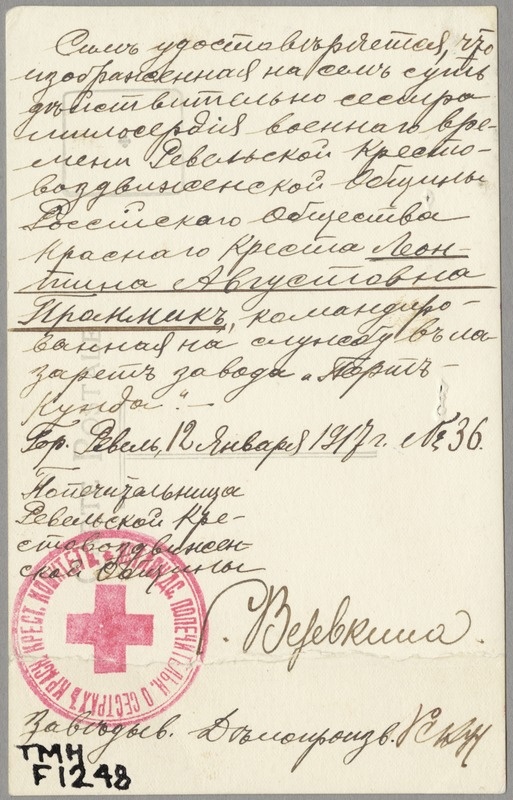 Симъ удостовѣряется, что
изображенная на семъ суть
дѣйствительно сестра
милосердія военнаго вре-
мени Ревельской Кресто-
воздвиженской Общины
Россійскаго Общества
Краснаго Креста Леон-
тина Августовна
Пракмикъ, командиро-
ванная на службу въ ла-
заретъ завода „Портъ-
Кунда".-
Гор. Ревель, 12 Января 1917 г. № 36.
Попечительница
Ревельской Кре-
стовоздвижен-
ской Общины
Веревкина.
ПОПЕЧИТЕЛЬН. О СЕСТРАХЪ КРАСН. КРЕСТ. КОМИТЕТЪ
Завѣдыв. Дѣлопроизв.
ТМН
F1248
CARTE POSTALE